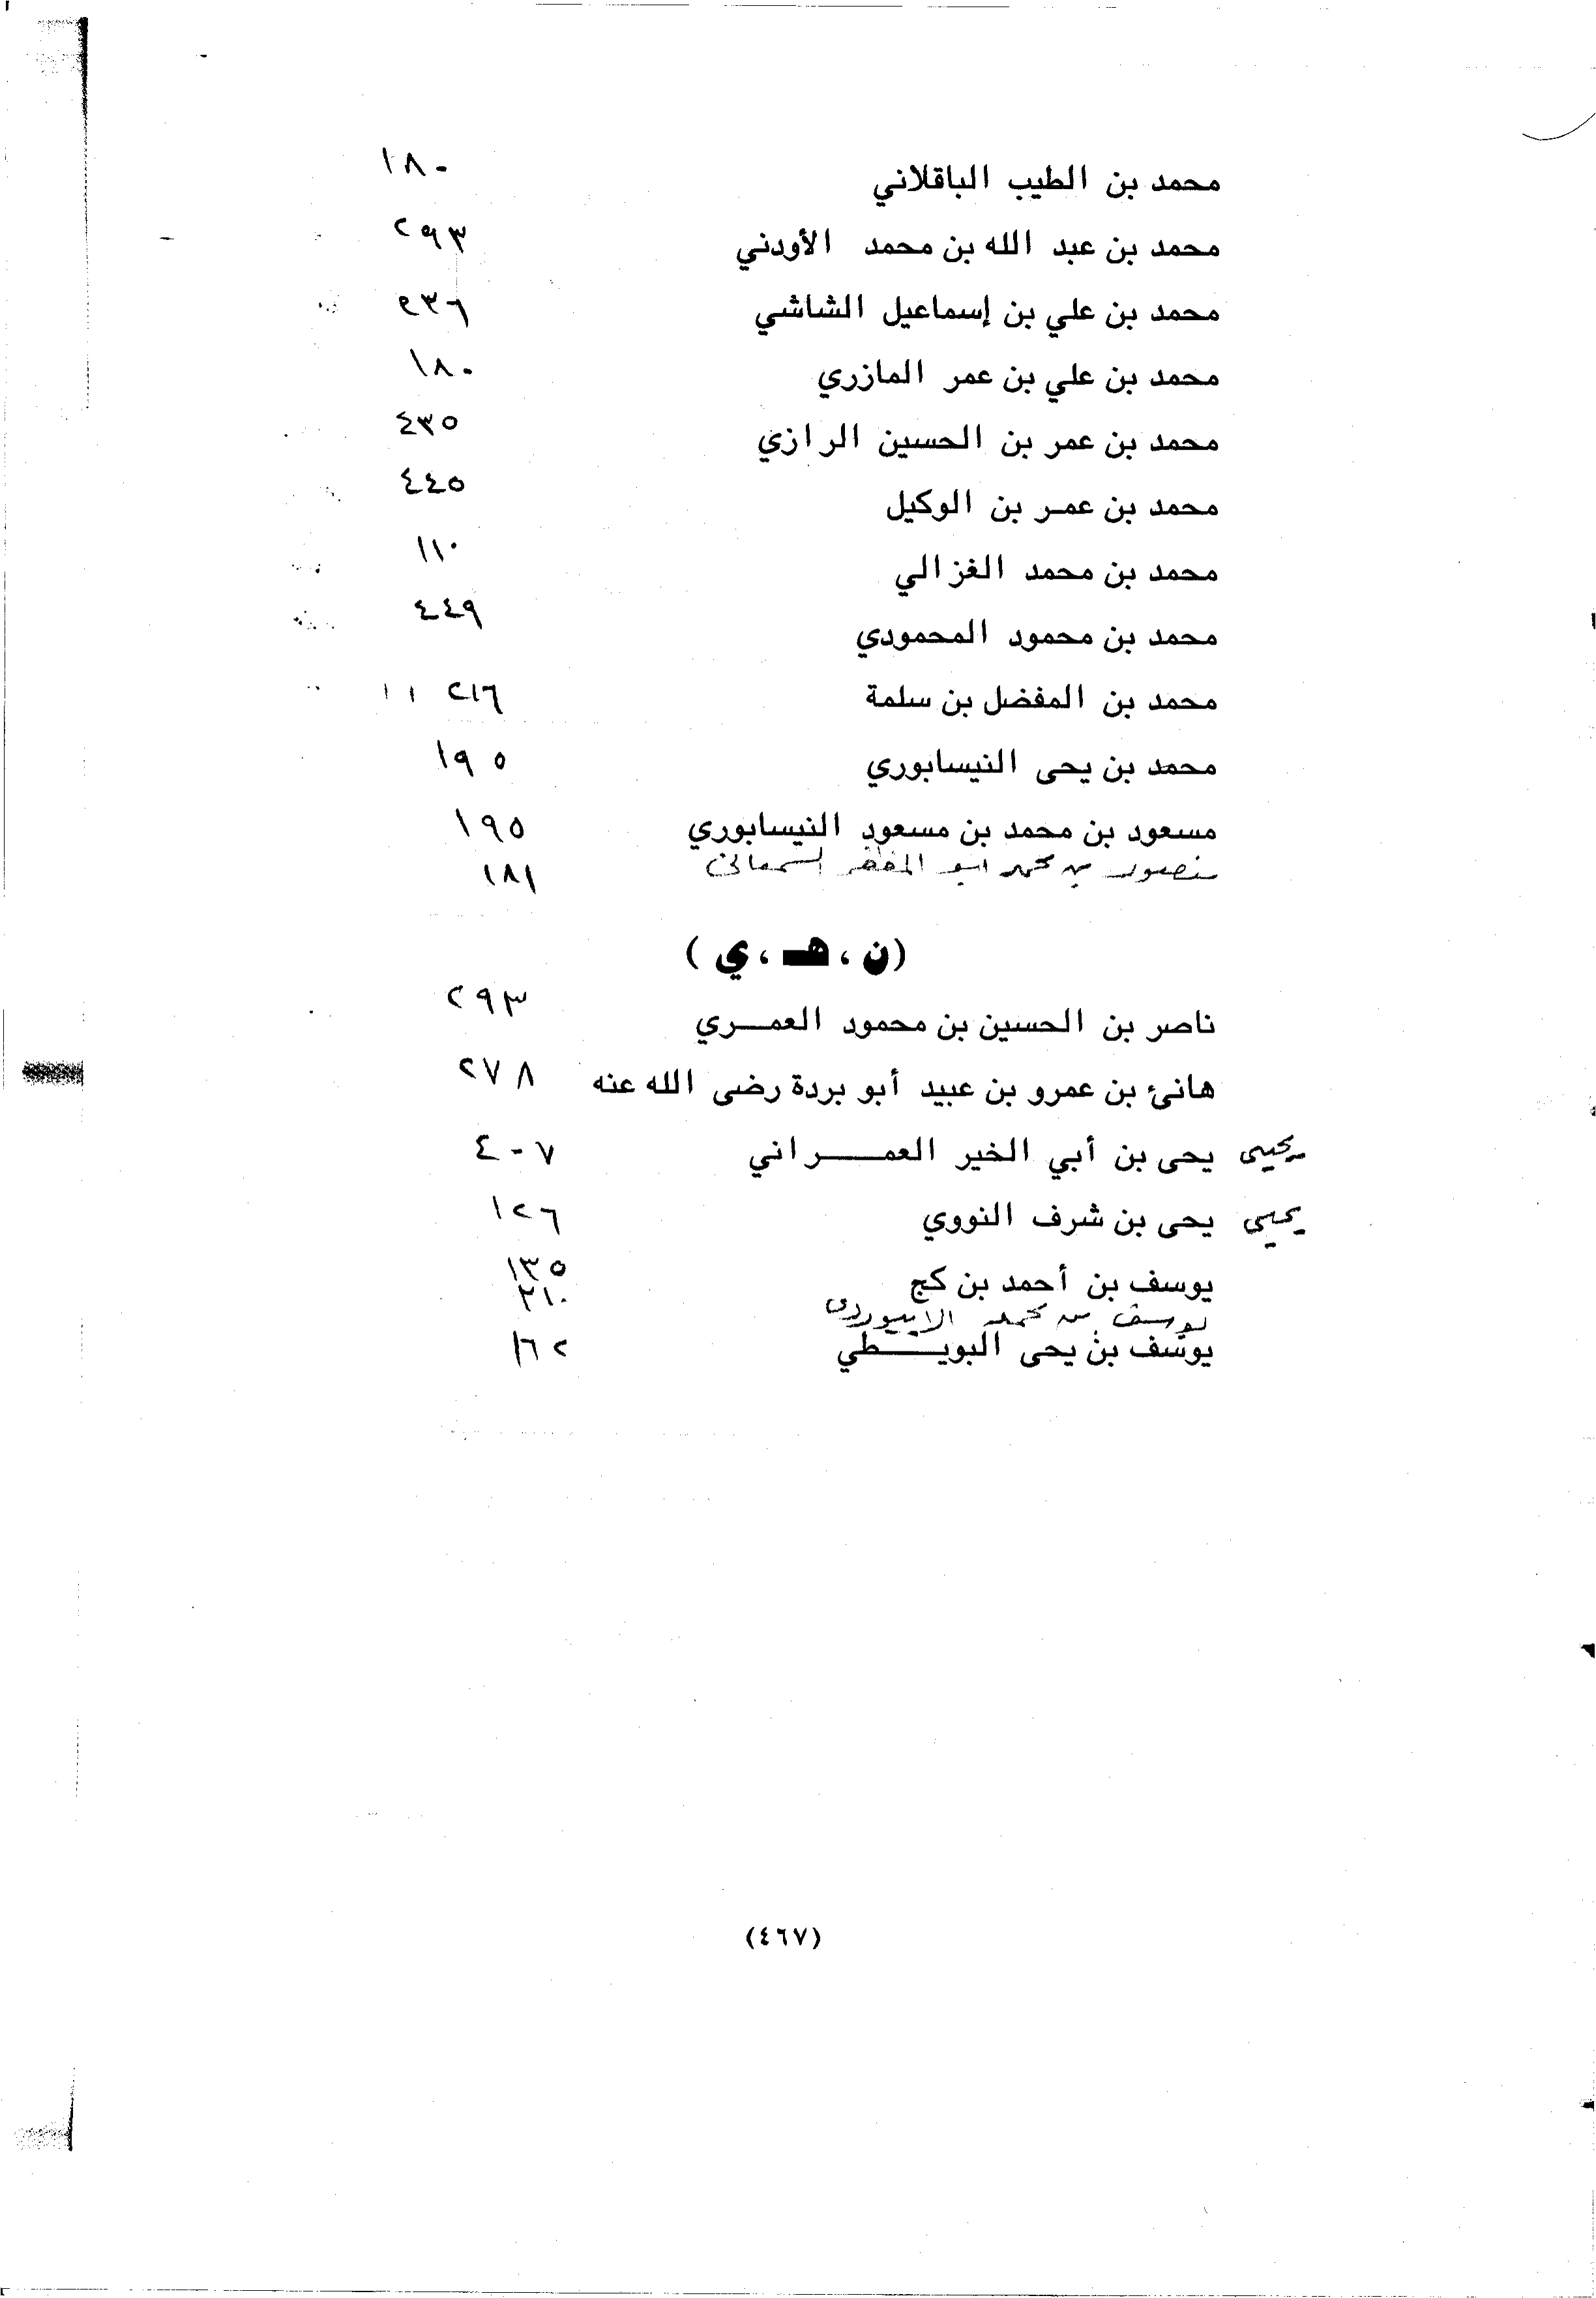 محمد بن الطيب الباقلاني ١٨٠
محمد بن عبد الله بن محمد الأودني ٢٩٣
محمد بن علي بن إسماعيل الشاشي ٢٣٦
محمد بن علي بن عمر المازري ١٨٠
محمد بن عمر بن الحسين الرازي ٤٣٥
محمد بن عمر بن الوكيل ٤٤٥
محمد بن محمد الغزالي ١١٠
محمد بن محمود المحمودي ٤٤٩
محمد بن المفضل بن سلمة ٢١٦
محمد بن يحى النيسابوري ١٩٥
مسعود بن محمد بن مسعود النيسابوري ١٩٥
منصور بن محمد ابو المظفر السمعاني ١٨١
(ن ، هـ ، ي )
ناصر بن الحسين بن محمود العمـــري ٢٩٣
هانئ بن عمرو بن عبيد أبو بردة رضى الله عنه ٢٧٨
يحيى يحى بن أبي الخير العمـــــراني ٤٠٧
يحيى يحى بن شرف النووي ١٢٦
يوسف بن أحمد بن كج ١٣٥
يوسف بن محمد الابيوردي ٣١٠
يوسف بن يحى البويـــــطي ١٦٢
(٤٦٧)